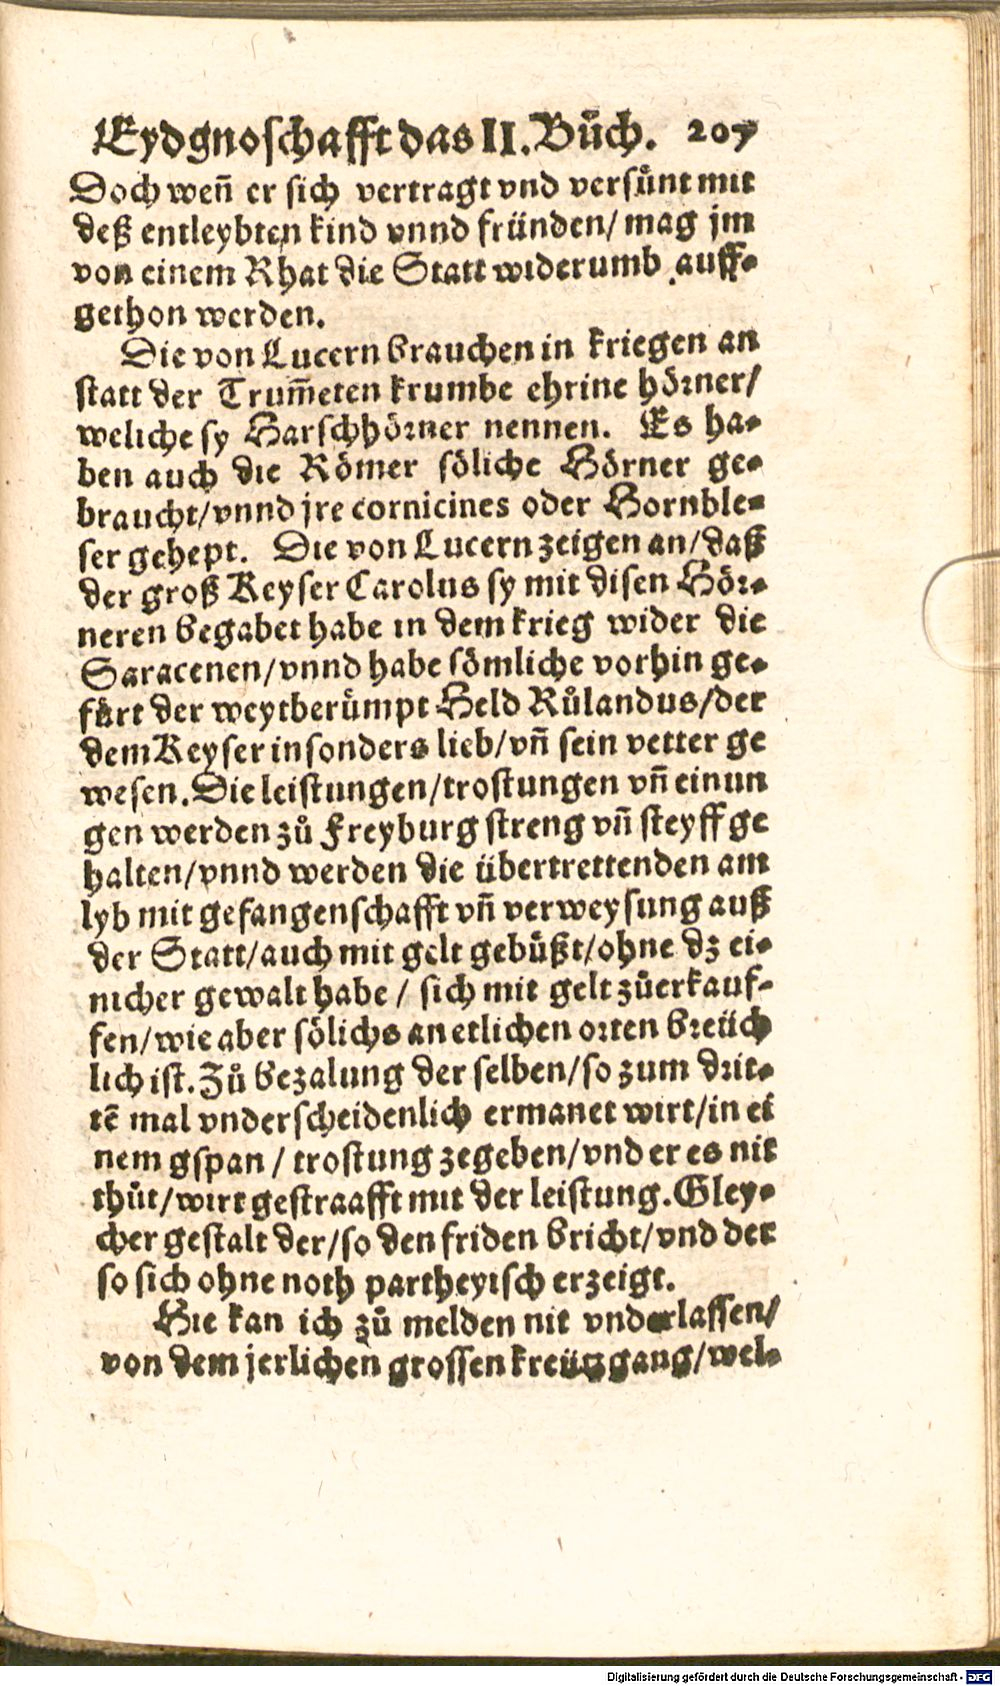 Eydgnoschafft das II. Bůch. 207
Doch weñ er sich vertragt vnd versůnt mit
deß entleybten kind vnnd fründen/ mag jm
von einem Rhat die Statt widerumb auff-
gethon werden.
Die von Lucern brauchen in kriegen an
statt der Trum̃eten krumbe ehrine hörner/
weliche sy Harschhörner nennen. Es ha-
ben auch die Römer söliche Hörner ge-
braucht/vnnd jre cornicines oder Hornble-
ser gehept. Die von Lucern zeigen an/daß
der groß Keyser Carolus sy mit disen Hör-
neren begabet habe in dem krieg wider die
Saracenen/vnnd habe sömliche vorhin ge-
fůrt der weytberümpt Held Růlandus/der
dem Keyser insonders lieb/vñ sein vetter ge
wesen. Die leistungen/trostungen vñ einun
gen werden zů Freyburg streng vñ steyff ge
halten/vnnd werden die übertrettenden am
lyb mit gefangenschafft vñ verweysung auß
der Statt/auch mit gelt gebůßt/ohne dz ei-
nicher gewalt habe / sich mit gelt zůerkauf-
fen/wie aber sölichs an etlichen orten breüch
lich ist. Zů bezalung der selben/so zum drit-
tē mal vnderscheidenlich ermanet wirt/in ei
nem gspan / trostung zegeben/vnd er es nit
thůt/wirt gestraafft mit der leistung. Gley-
cher gestalt der/so den friden bricht/vnd der
so sich ohne noth partheytsch erzeigt.
Hie kan ich zů melden nit vnderlassen/
von dem jerlichen grossen kreützgang/wel-
Digitalisierung gefördert durch die Deutsche Forschungsgemeinschaft - DFG